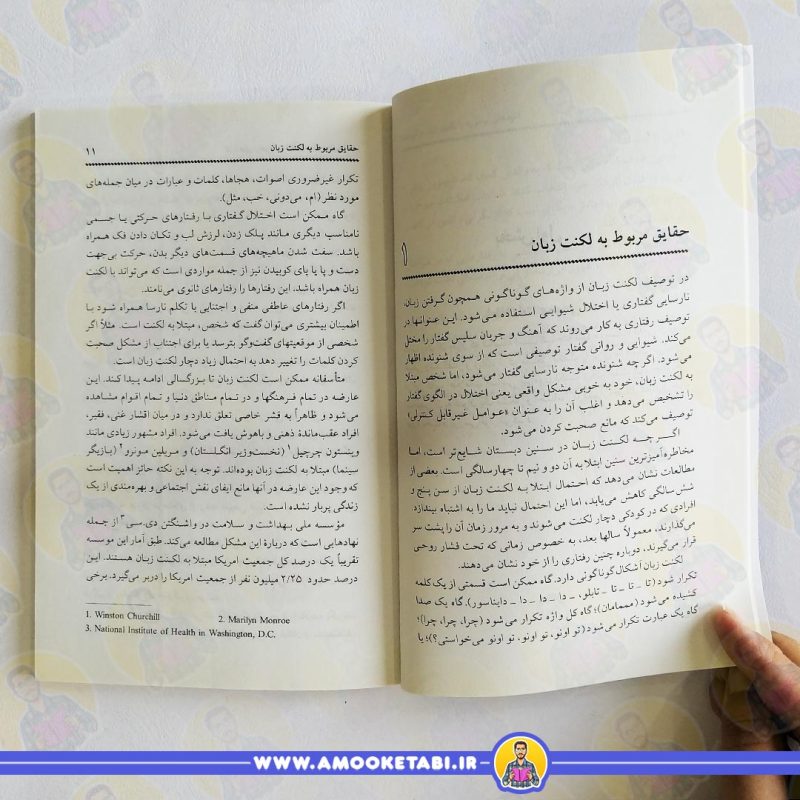 حقایق مربوط به لکنت زبان
۱
در توصیف لکنت زبان از واژه‌های گوناگونی همچون گرفتن زبان،
نارسایی گفتاری یا اختلال شیوایی استفاده می‌شود. این عنوانها در
توصیف رفتاری به کار می‌روند که آهنگ و جریان سلیس گفتار را مختل
می‌کند. شیوایی و روانی گفتار توصیفی است که از سوی شنونده اظهار
می‌شود. اگر چه شنونده متوجه نارسایی گفتار می‌شود، اما شخص مبتلا
به لکنت زبان، خود به خوبی مشکل واقعی یعنی اختلال در الگوی گفتار
را تشخیص می‌دهد و اغلب آن را به عنوان «عوامل غیرقابل کنترلی»
توصیف می‌کند که مانع صحبت کردن می‌شود.
اگر چه لکنت زبان در سنین دبستان شایع‌تر است، اما
مخاطره‌آمیزترین سنین ابتلا به آن دو و نیم تا چهارسالگی است. بعضی از
مطالعات نشان می‌دهد که احتمال ابتلا به لکنت زبان از سن پنج و
شش سالگی کاهش می‌یابد، اما این احتمال نباید ما را به اشتباه بیندازد.
افرادی که در کودکی دچار لکنت می‌شوند و به مرور زمان آن را پشت سر
می‌گذارند، معمولاً سالها بعد، به خصوص زمانی که تحت فشار روحی
قرار می‌گیرند، دوباره چنین رفتاری را از خود نشان می‌دهند.
لکنت زبان اَشکال گوناگونی دارد. گاه ممکن است قسمتی از یک کلمه
تکرار شود (تا ـ تا ـ تا ـ تابلو، ـ دا ـ دا ـ دا ـ دایناسور). گاه یک صدا
کشیده می‌شود (مممامان)؛ گاه کل واژه تکرار می‌شود (چرا، چرا، چرا)؛
گاه یک عبارت تکرار می‌شود (تو اونو، تو اونو، تو اونو می‌خواستی؟)؛ یا
حقایق مربوط به لکنت زبان ۱۱
تکرار غیرضروری اصوات، هجاها، کلمات و عبارات در میان جمله‌های
مورد نظر (اِم، می‌دونی، خب، مثل).
گاه ممکن است اختلال گفتاری با رفتارهای حرکتی یا جسمی
نامناسب دیگری مانند پلک زدن، لرزش لب و تکان دادن فک همراه
باشد. سفت شدن ماهیچه‌های قسمت‌های دیگر بدن، حرکت بی‌جهت
دست و پا یا پای کوبیدن نیز از جمله مواردی است که می‌تواند با لکنت
زبان همراه باشد، این رفتارها را رفتارهای ثانوی می‌نامند.
اگر رفتارهای عاطفی منفی و اجتنابی با تکلم نارسا همراه شود با
اطمینان بیشتری می‌توان گفت که شخص، مبتلا به لکنت است. مثلاً اگر
شخصی از موقعیتهای گفت‌وگو بترسد یا برای اجتناب از مشکل صحبت
کردن کلمات را تغییر دهد به احتمال زیاد دچار لکنت زبان است.
متأسفانه ممکن است لکنت زبان تا بزرگسالی ادامه پیدا کند. این
عارضه در تمام فرهنگها و در تمام مناطق دنیا و تمام اقوام مشاهده
می‌شود و ظاهراً به قشر خاصی تعلق ندارد و در میان اقشار غنی، فقیر،
افراد عقب‌ماندهٔ ذهنی و باهوش یافت می‌شود. افراد مشهور زیادی مانند
وینستون چرچیل۱ (نخست‌وزیر انگلستان) و مریلین مونرو۲ (بازیگر
سینما) مبتلا به لکنت زبان بوده‌اند. توجه به این نکته حائز اهمیت است
که وجود این عارضه در آنها مانع ایفای نقش اجتماعی و بهره‌مندی از یک
زندگی پربار نشده است.
مؤسسه ملی بهداشت و سلامت در واشنگتن دی.سی۳ از جمله
نهادهایی است که دربارهٔ این مشکل مطالعه می‌کند. طبق آمار این موسسه
تقریباً یک درصد کل جمعیت امریکا مبتلا به لکنت زبان هستند. این
درصد حدود ۲/۲۵ میلیون نفر از جمعیت امریکا را دربر می‌گیرد. برخی
1. Winston Churchill 2. Marilyn Monroe
3. National Institute of Health in Washington, D.C.
WWW.AMOOKETABI.IR